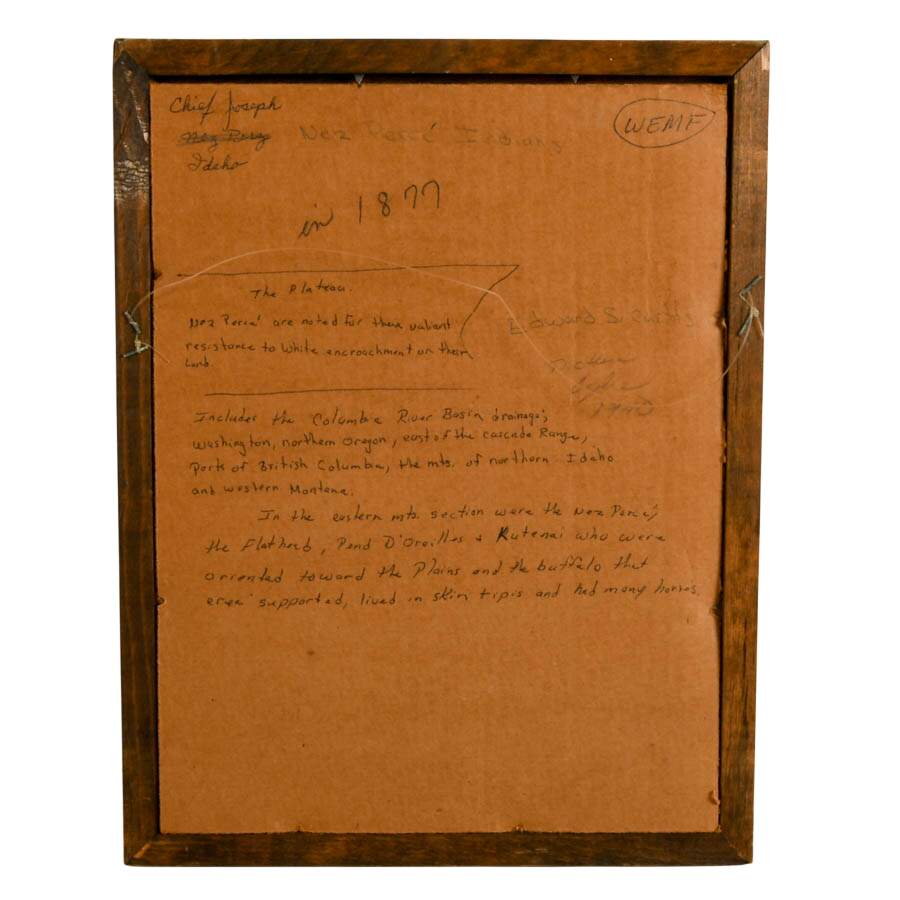 Chief Joseph
Nez Perce Nez Percé Indians
Idaho
WEMF
in 1877
The Plateau.
Nez Percé are noted for their valiant
resistance to White encroachment on their
land.
Edward S. Curtis
Includes the Columbia River Basin drainage;
Washington, northern Oregon, east of the Cascade Range,
Parts of British Columbia, the mts. of northern Idaho
and western Montana.
In the eastern mts. section were the Nez Percé,
the Flathead, Pend D'Oreilles + Kutenai who were
oriented toward the Plains and the buffalo that
area supported, lived in skin tipis and had many horses.